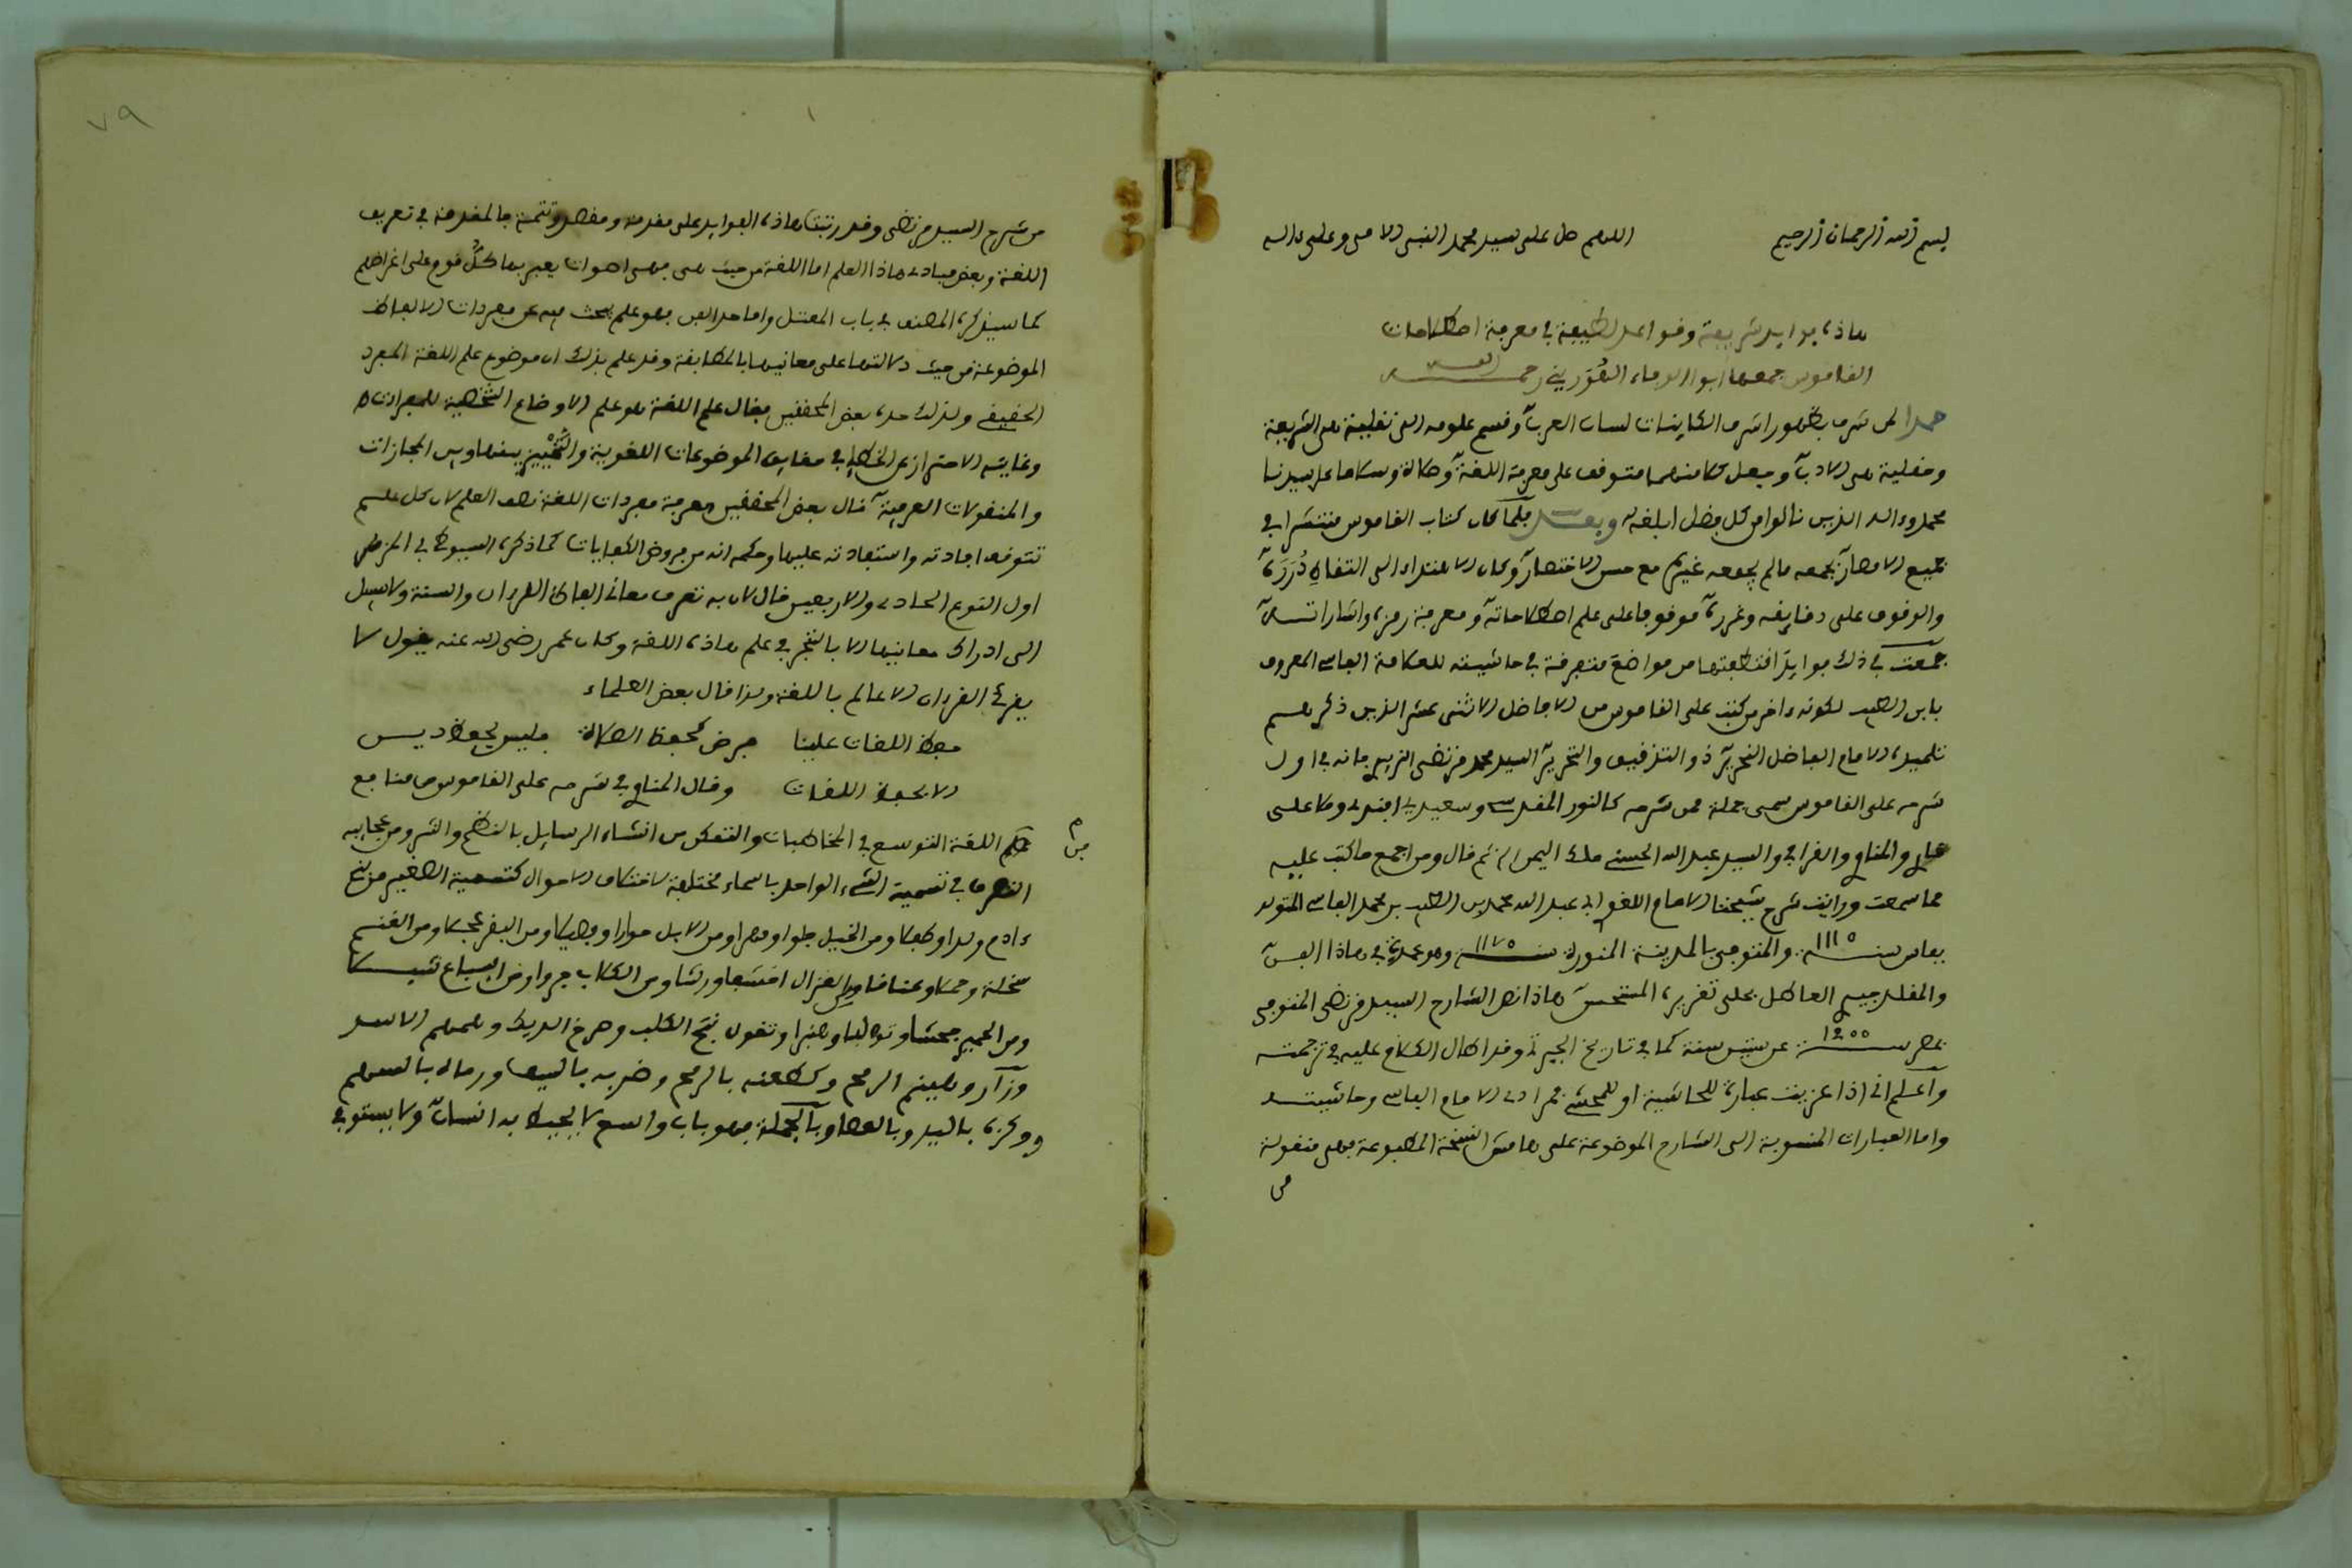 بسم الله الرحمان الرحيم اللهم صل على سيد محمد النبي الامي وعلى ءاله
هاذه فوايد شريفة وقواعد لطيفة في معرفة اصطلاحات
القاموس جمعها ابو الوفاء الهوريني رحمه الله
حمدا لمن شرف بظهور اشرف الكاينات لسان العرب وقسم علومه الى نقلية هى الشريعة
وعقلية هى الادب وجعل كلا منهما متوقفا على معرفة اللغة وصلاة وسلاما على سيدنا
محمد وءاله الذين نالوا من كل فضل ابلغه وبعد فلما كان كتاب القاموس منتشرا في
جميع الامصار بجمعه ما لم يجمعه غيره مع حسن الاختصار وكان الاهتداء الى التقاط درره
والوقوف على دقايقه وغرره موقوفا على علم اصطلاحاته ومعرفة رمزه واشاراته
جمعت في ذلك فوايد اقتطفتها من مواضع متفرقة في حاشيته للعلامة الفاسي المعروف
بابن الطيب لكونه ءاخر من كتب على القاموس من الافاضل الاثنى عشر الذين ذكرهم
تلميذه الامام الفاضل النحرير ذو التدقيق والتحرير السيد محمد مرتضى الزبيدي فانه في اول
شرحه على القاموس سمى جملة ممن شرحه كالنور المقدسي وسعدي افندي وملا على
والمناوي والقرافي والسيد عبد الله الحسني ملك اليمن ثم قال ومن اجمع ما كتب عليه
مما سمعت ورايت شرح شيخنا الامام اللغوي ابي عبد الله محمد بن الطيب بن محمد الفاسي المتولد
بفاس سنة ١١١٠ والمتوفى بالمدينة المنورة سنة ١١٧٠ وهو عمدتي في هاذا الفن
والمقلد جيدي العاطل بحلى تقريره المستحسن هاذا نص الشارح السيد مرتضى المتوفى
بمصر سنة ١٢٠٠ عن ستين سنة كما في تاريخ الجبرتي وقد اطال الكلام عليه في ترجمته
واعلم اني اذا عزيت عبارة للحاشية او للمحشي فمرادي الامام الفاسي وحاشيته
واما العبارات المنسوبة الى الشارح الموضوعة على هامش النسخة المطبوعة فهى منقولة
من
٧٩
١
من شرح السيد مرتضى وقد رتبت هاذه الفوايد على مقدمة ومقصد وتتمة فالمقدمة في تعريف
اللغة وبعض مبادي هاذا العلم اما اللغة من حيث هى فهى اصوات يعبر بها كل قوم على اغراضهم
كما سيذكره المصنف في باب المعتل واما حد الفن فهو علم يبحث فيه عن مفردات الالفاظ
الموضوعة من حيث دلالتها على معانيها بالمطابقة وقد علم بذلك ان موضوع علم اللغة المفرد
الحقيقي ولذلك حده بعض المحققين فقال علم اللغة هو علم الاوضاع الشخصية للمفردات
وغايته الاحتراز عن الخطإ في حقايق الموضوعات اللغوية والتمييز بينها وبين المجازات
والمنقولات العرفية قال بعض المحققين معرفة مفردات اللغة نصف العلم لان كل علم
تتوقف افادته واستفادته عليها وحكمه انه من فروض الكفايات كما ذكره السيوطي في المزهر
اول النوع الحادي والاربعين قال لان به تعرف معاني الفاظ القرءان والسنة ولا سبيل
الى ادراك معانيها الا بالتبحر في علم هاذه اللغة وكان عمر رضي الله عنه يقول لا
يقرئ القرءان الا عالم باللغة ولذا قال بعض العلماء
حفظ اللغات علينا فرض كحفظ الصلاة فليس يحفظ دين
الا بحفظ اللغات وقال المناوي في شرحه على القاموس من منافع
علم اللغة التوسع في المخاطبات والتمكن من انشاء الرسايل بالنظم والنثر ومن عجايبه
التصرف في تسمية الشيء الواحد باسماء مختلفة لاختلاف الاحوال كتسمية الصغير من بني
ءادم ولدا وطفلا ومن الخيل فلوا ومهرا ومن الابل حوارا وفصيلا ومن البقر عجلا ومن الغنم
سخلة وحملا وعناقا ومن الغزال خشفا ورشا ومن الكلاب جروا ومن السباع شبلا
ومن الحمير جحشا وتولبا وهنبرا وتقول نبح الكلب وصرخ الديك وهمهم الاسد
وزأر وطعنه بالرمح وضربه بالسيف ورماه بالسهم
ووكزه باليد وبالعصا وبالجملة فهو باب واسع لا يحيط به انسان ولا يستوفي